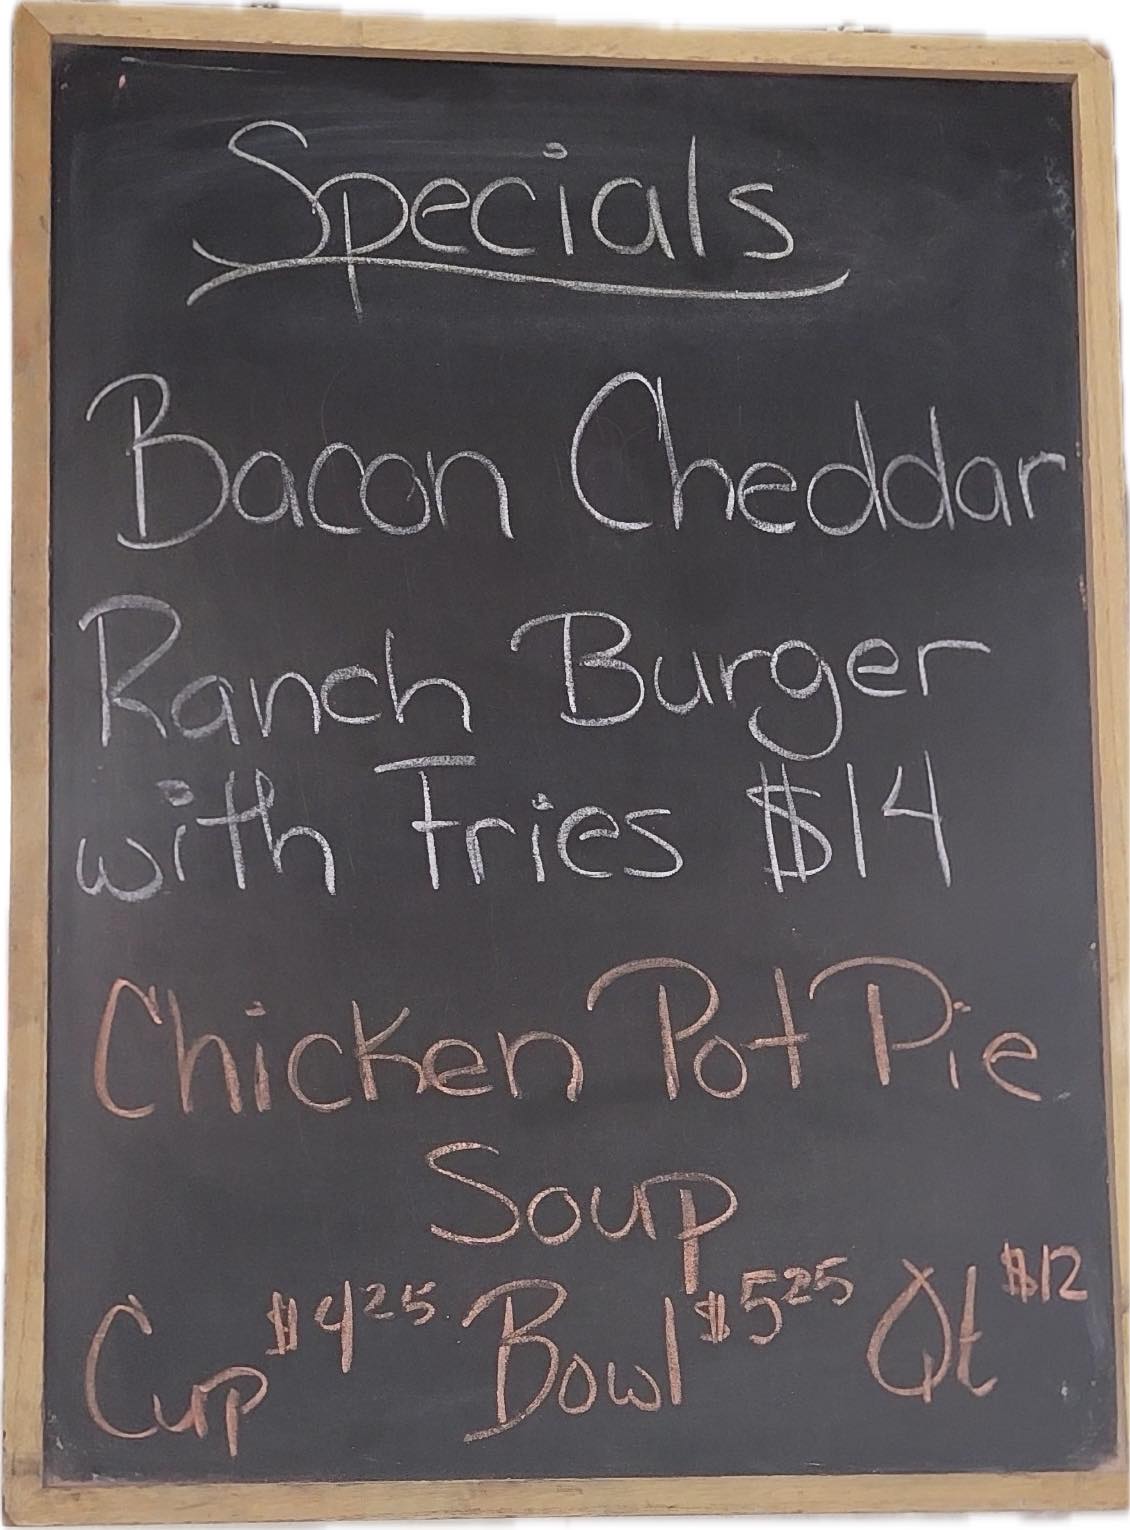 Specials
Bacon Cheddar
Ranch Burger
with Fries $14
Chicken Pot Pie
Soup
Cup $4.25 Bowl $5.25 Qt $12